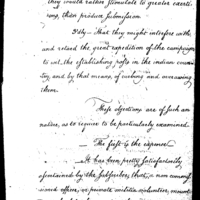 they would rather stimulate to greater exerti-
ons, than produce submission.
9thly – That they might interfere with
and retard the great expedition of the campaign
to wit, the establishing posts in the indian coun-
try, and by that means, of curbing and overawing
them.
These objections are of such an
nature, as to require to be particularly examined
— The first is the expense —
It has been pretty satisfactorily
ascertained by the
officers, or private militia